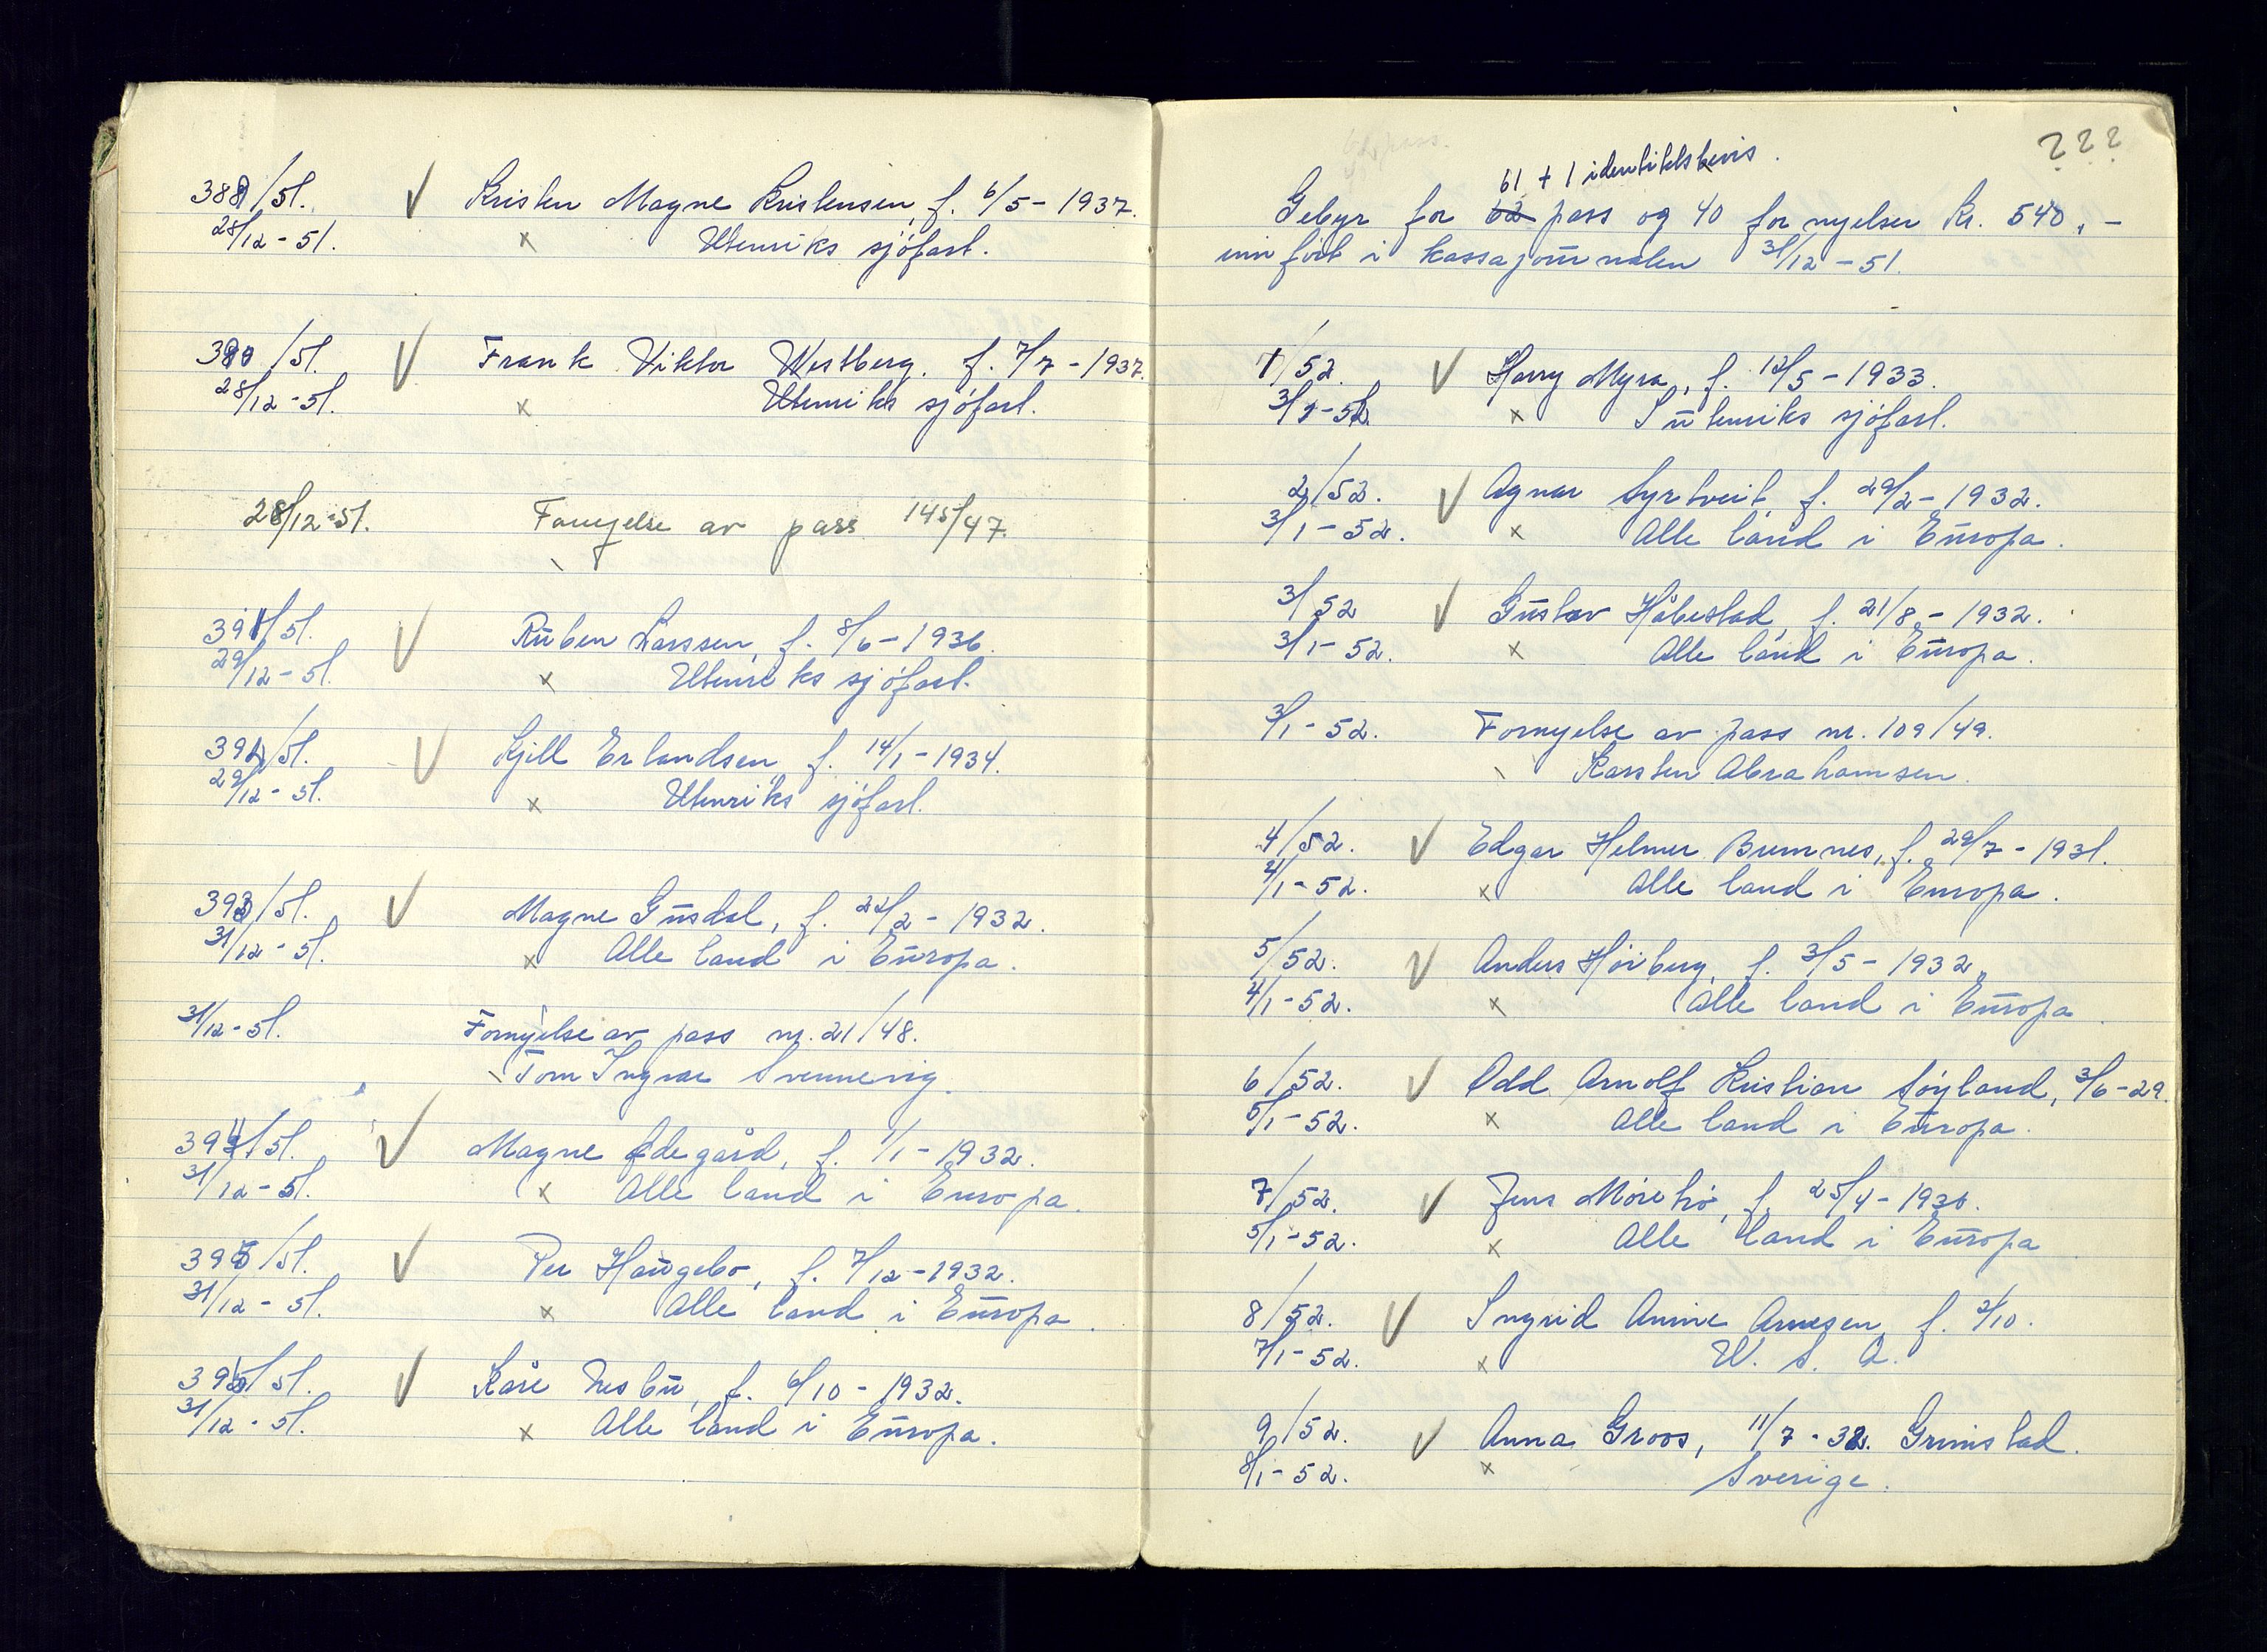 389/51. V Kristen Magne Kristensen, f. 6/5 - 1937.
28/12 - 51. x Utenriks sjøfart.
390/51. V Frank Viktor Westberg. f. 7/7 - 1937.
28/12 - 51. x Utenriks sjøfart.
28/12 - 51. Fornyelse av pass 145/47.
391/51. V Ruben Larssen, f. 8/6 - 1936.
29/12 - 51. x Utenriks sjøfart.
392/51. V Kjell Erlandsen f. 14/1 - 1934.
29/12 - 51. x Utenriks sjøfart.
393/51. V Magne Gusdal, f. 22/2 - 1932.
31/12 - 51. x Alle land i Europa.
31/12 - 51. Fornyelse av pass nr. 21/48.
Tom Ingvar Svennevig.
394/51. V Magne Ødegård, f. 1/1 - 1932.
31/12 - 51. x Alle land i Europa.
395/51. V Per Haugebo, f. 7/12 - 1932.
31/12 - 51. x Alle land i Europa.
396/51. V Kåre Nesbu, f. 6/10 - 1932.
31/12 - 51. x Alle land i Europa.
222
61 + 1 identitetsbevis.
Gebyr for 62 pass og 40 fornyelser Kr. 540,-
innført i kassajournalen 31/12 - 51.
1/52. V Harry Myra, f. 12/5 - 1933.
3/1 - 52. x I utenriks sjøfart.
2/52. V Agnar Syrtveit, f. 29/2 - 1932.
3/1 - 52. x Alle land i Europa.
3/52 V Gustav Håbestad, f. 21/8 - 1932.
3/1 - 52. x Alle land i Europa.
3/1 - 52. Fornyelse av pass nr. 109/49.
Karsten Abrahamsen.
4/52. V Edgar Helmer Bremnes, f. 29/7 - 1931.
4/1 - 52. x Alle land i Europa.
5/52. V Anders Høiberg, f. 3/5 - 1932.
4/1 - 52. x Alle land i Europa.
6/52. V Odd Arnolf Kristian Søyland, 3/6 - 29.
5/1 - 52. x Alle land i Europa.
7/52. V Jens Møretrø, f. 25/4 - 1936.
5/1 - 52. x Alle land i Europa
8/52. V Ingrid Annie Arnesen, f. 2/10.
7/1 - 52. x U. S. A.
9/52. V Anna Groos, 11/7 - 32. Grimstad.
8/1 - 52. x Sverige.